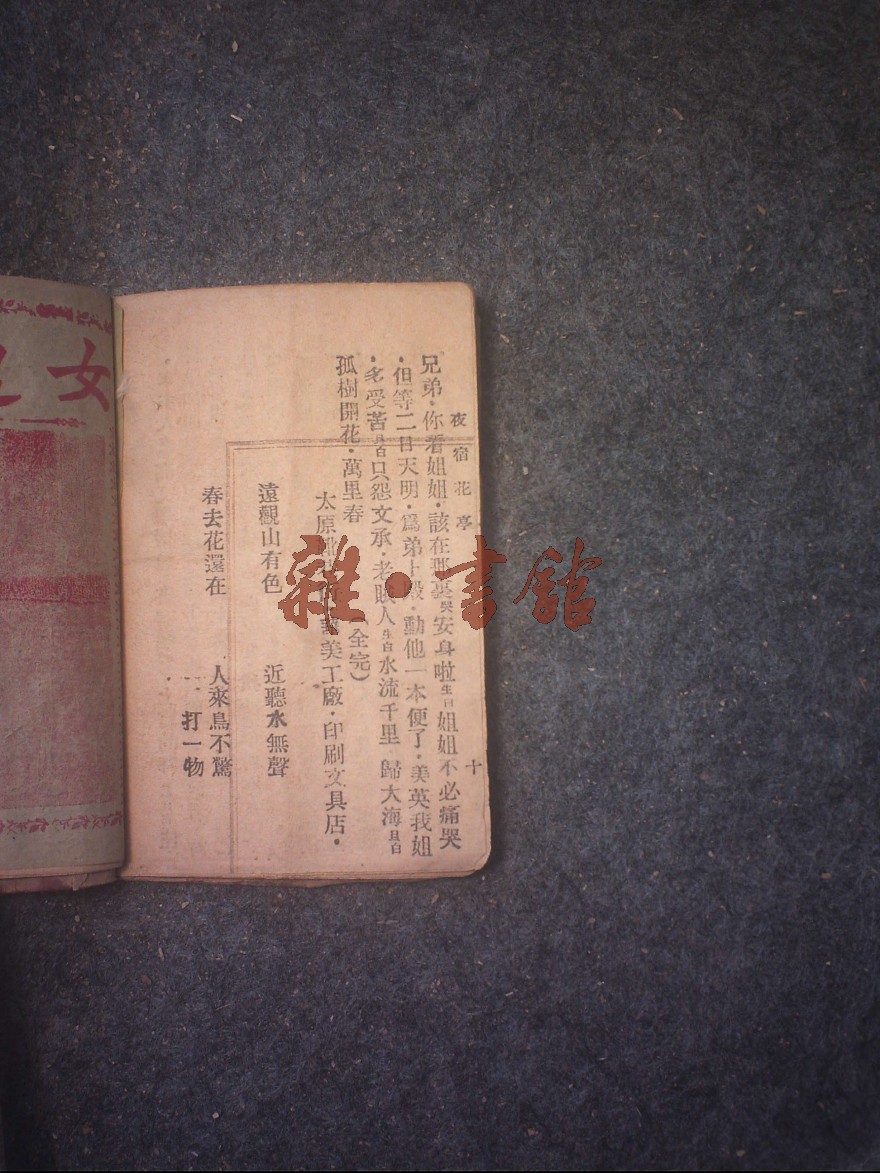 夜宿花亭 十
兄弟・你看姐姐・該在 安身啦 生白 姐姐不必痛哭
・但等二日天明・爲弟上殿・動他一本便了・美英我姐
・多受苦 旦白 只怨文承・老賊人 生白 水流千里歸大海 旦白
孤樹開花・萬里春 (全完)
太原 美工廠・印刷文具店・
遠觀山有色 近聽水無聲
春去花還在 人來鳥不驚
打一物
女
雜・書館